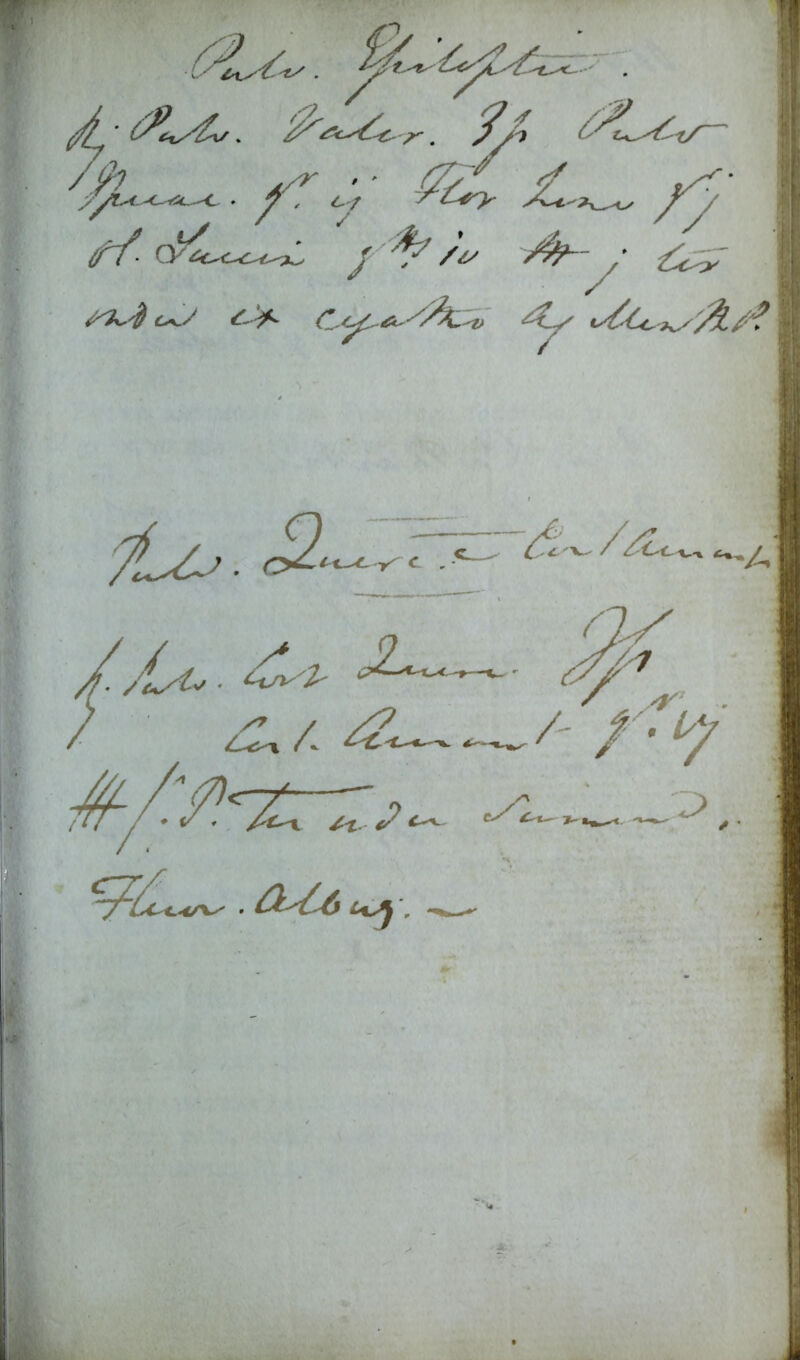 Pulv. Epileptic.
℞. Pulv. Valer. ʒß Pulv
Ipecac. gr. ij Flor Zinci gr j
ol. Succin gtts iv M j ter
in die ex cyatho Aq Menth P.
Pulv. Querc. c Cort Aurant
℞. Pulv. Cort Querc. ʒß
Cort. Aurant gr. vj
M f. P. Ter in die Sumend.
Fluor. Albus. —